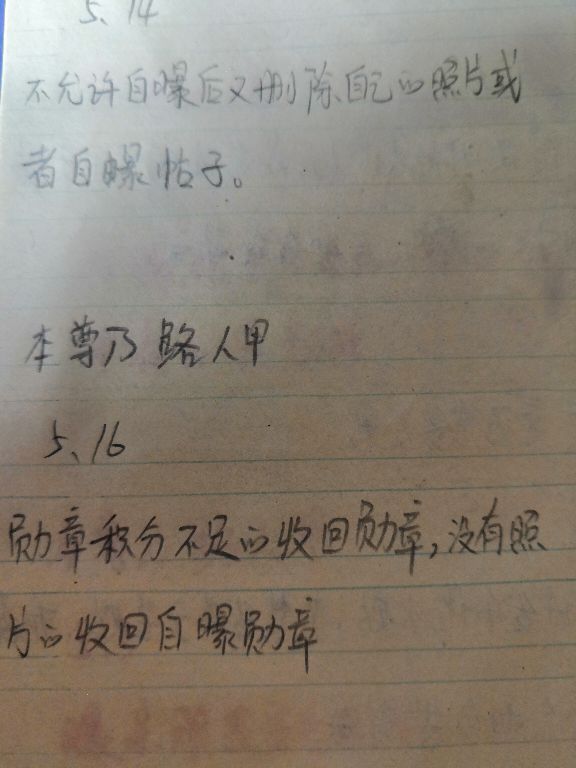 5、14
不允许自曝后又删除自己的照片或
者自曝帖子。
本尊乃路人甲
5、16
勋章积分不足的收回勋章,没有照
片的收回自曝勋章